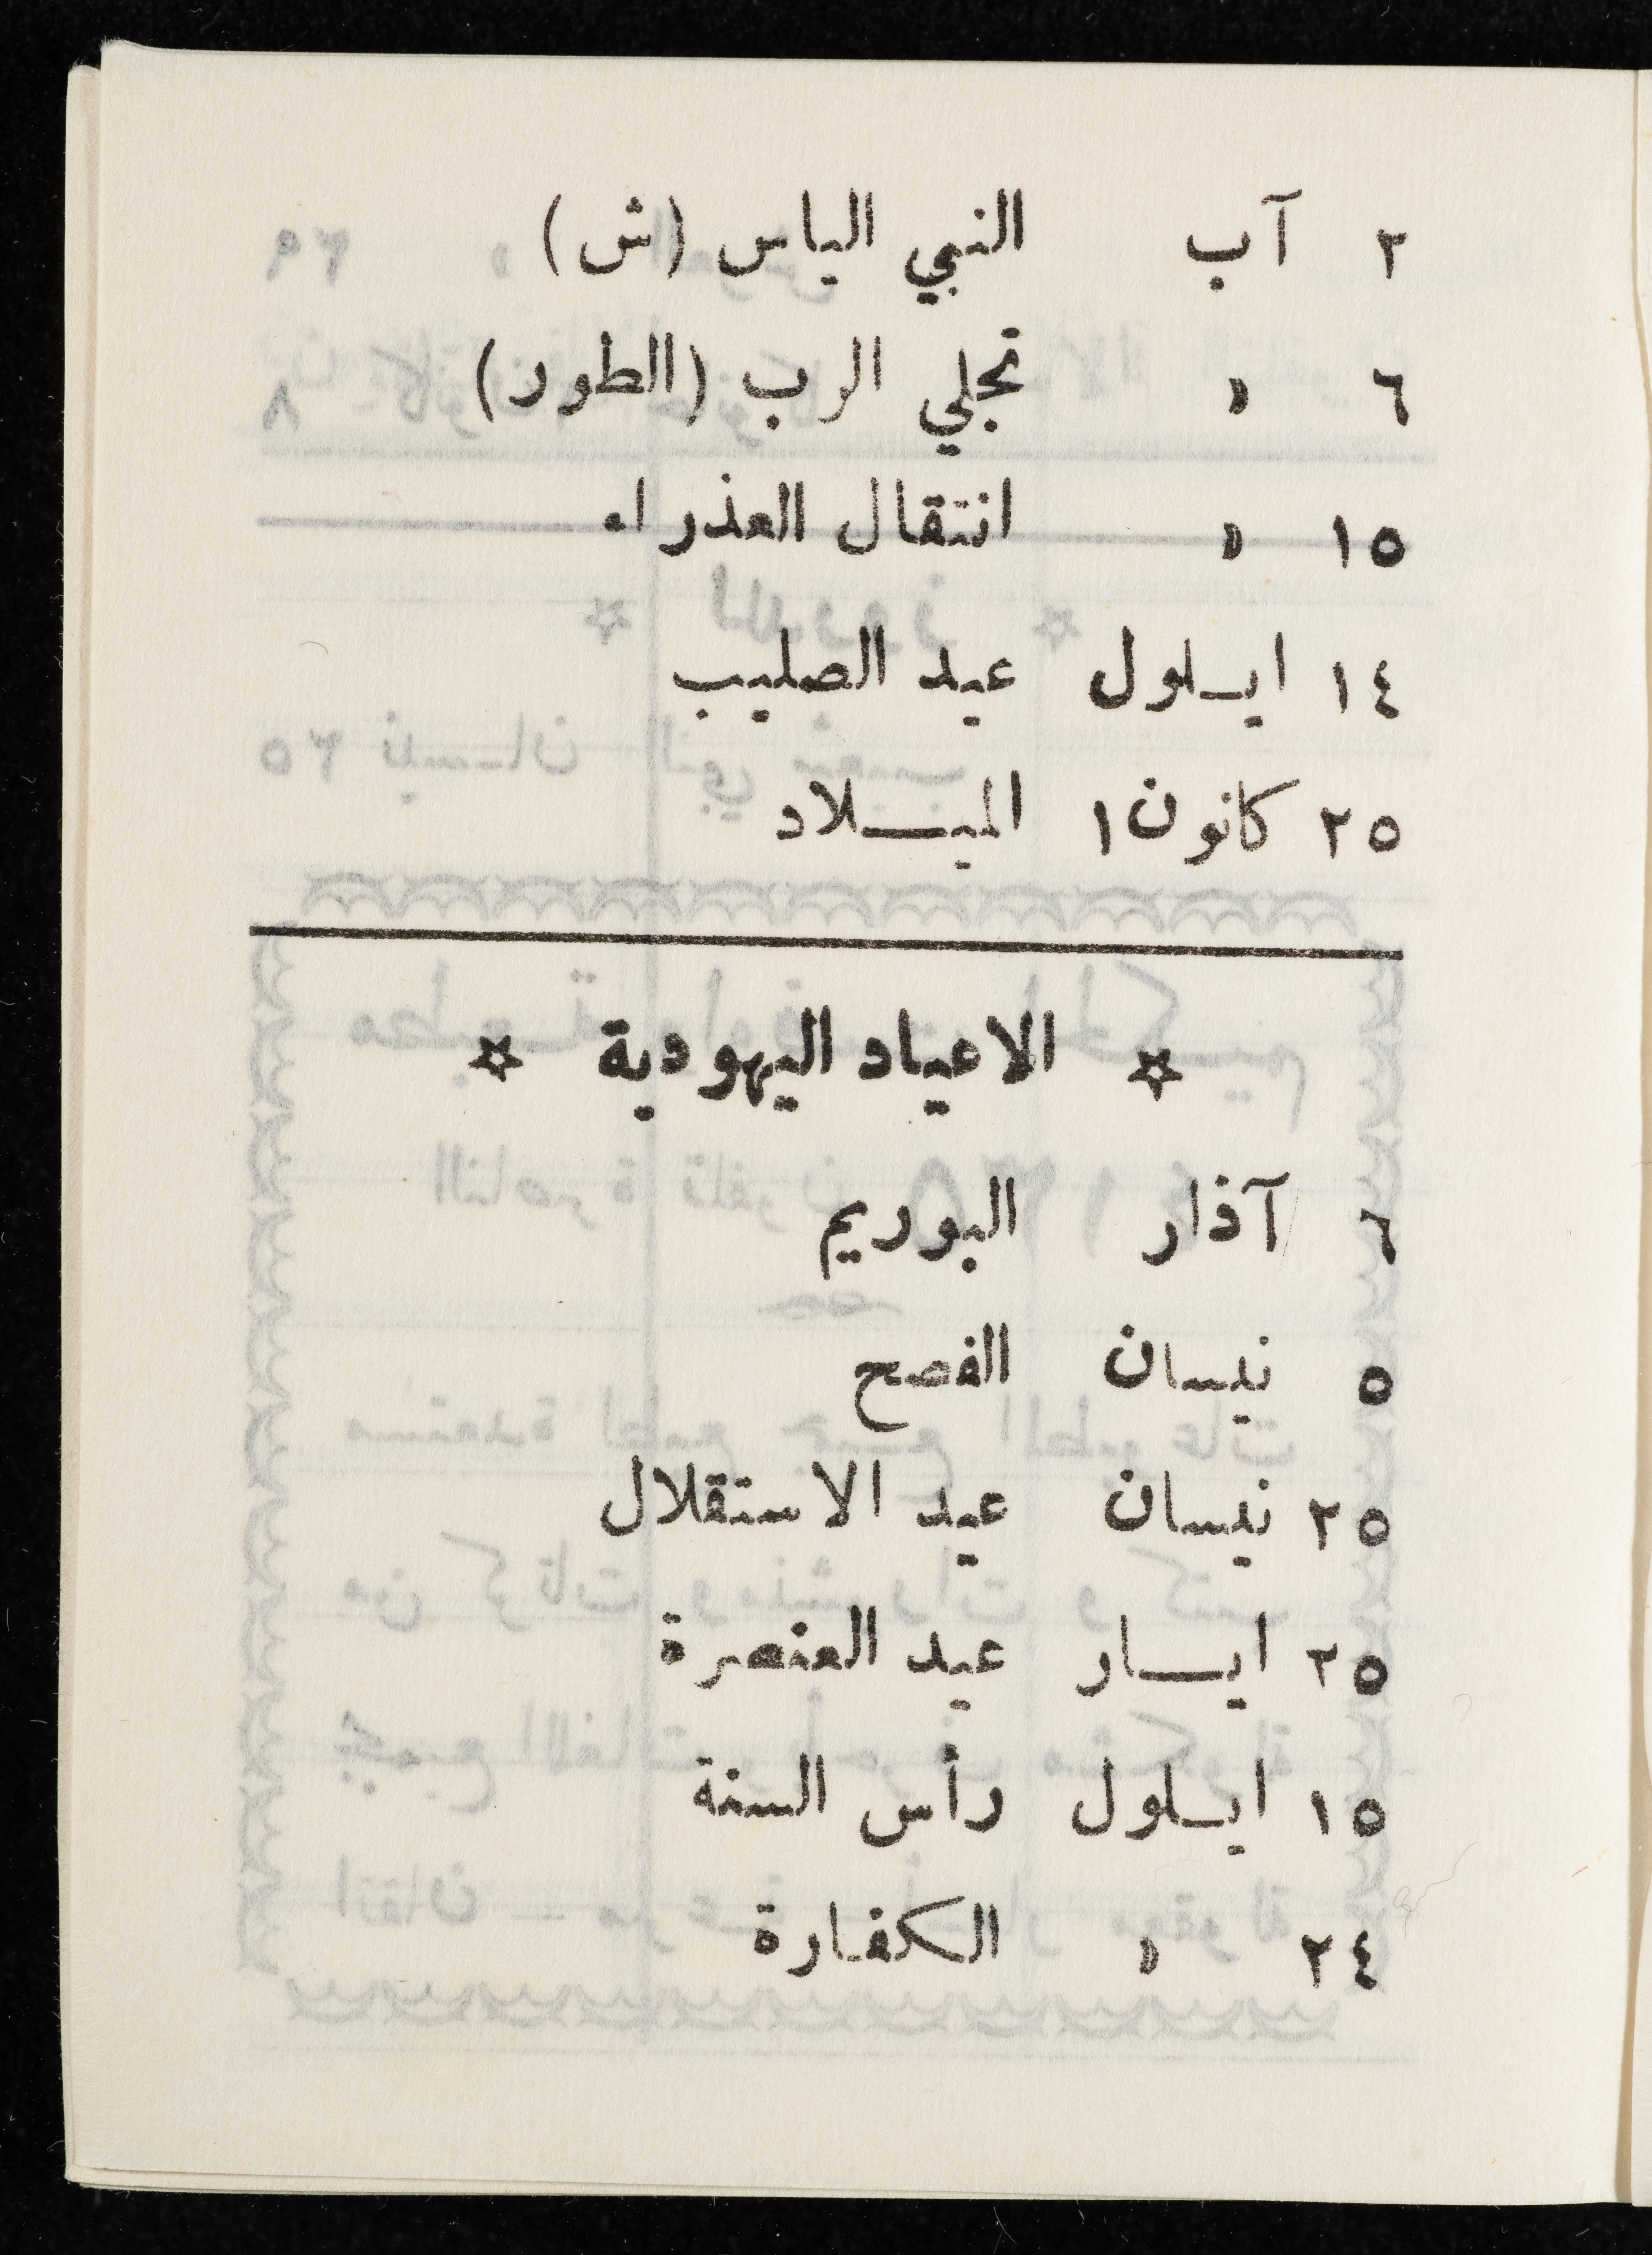 ٢ آب النبي الياس (ش)
٦ » تجلي الرب (الطور)
١٥ » انتقال العذراء
١٤ ايـلول عيد الصليب
٢٥ كانون١ الميـــلاد
☆ الاعياد اليهودية ☆
٦ آذار البوريم
٥ نيسان الفصح
٢٥ نيسان عيد الاستقلال
٢٥ ايــار عيد العنصرة
١٥ ايـلول رأس السنة
٢٤ » الكفارة